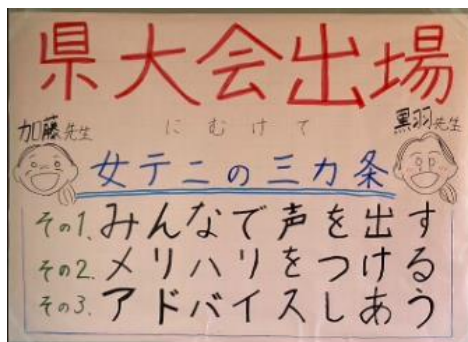 県大会出場
にむけて
加藤先生
黒羽先生
女テニの三カ条
その1. みんなで声を出す
その2. メリハリをつける
その3. アドバイスしあう